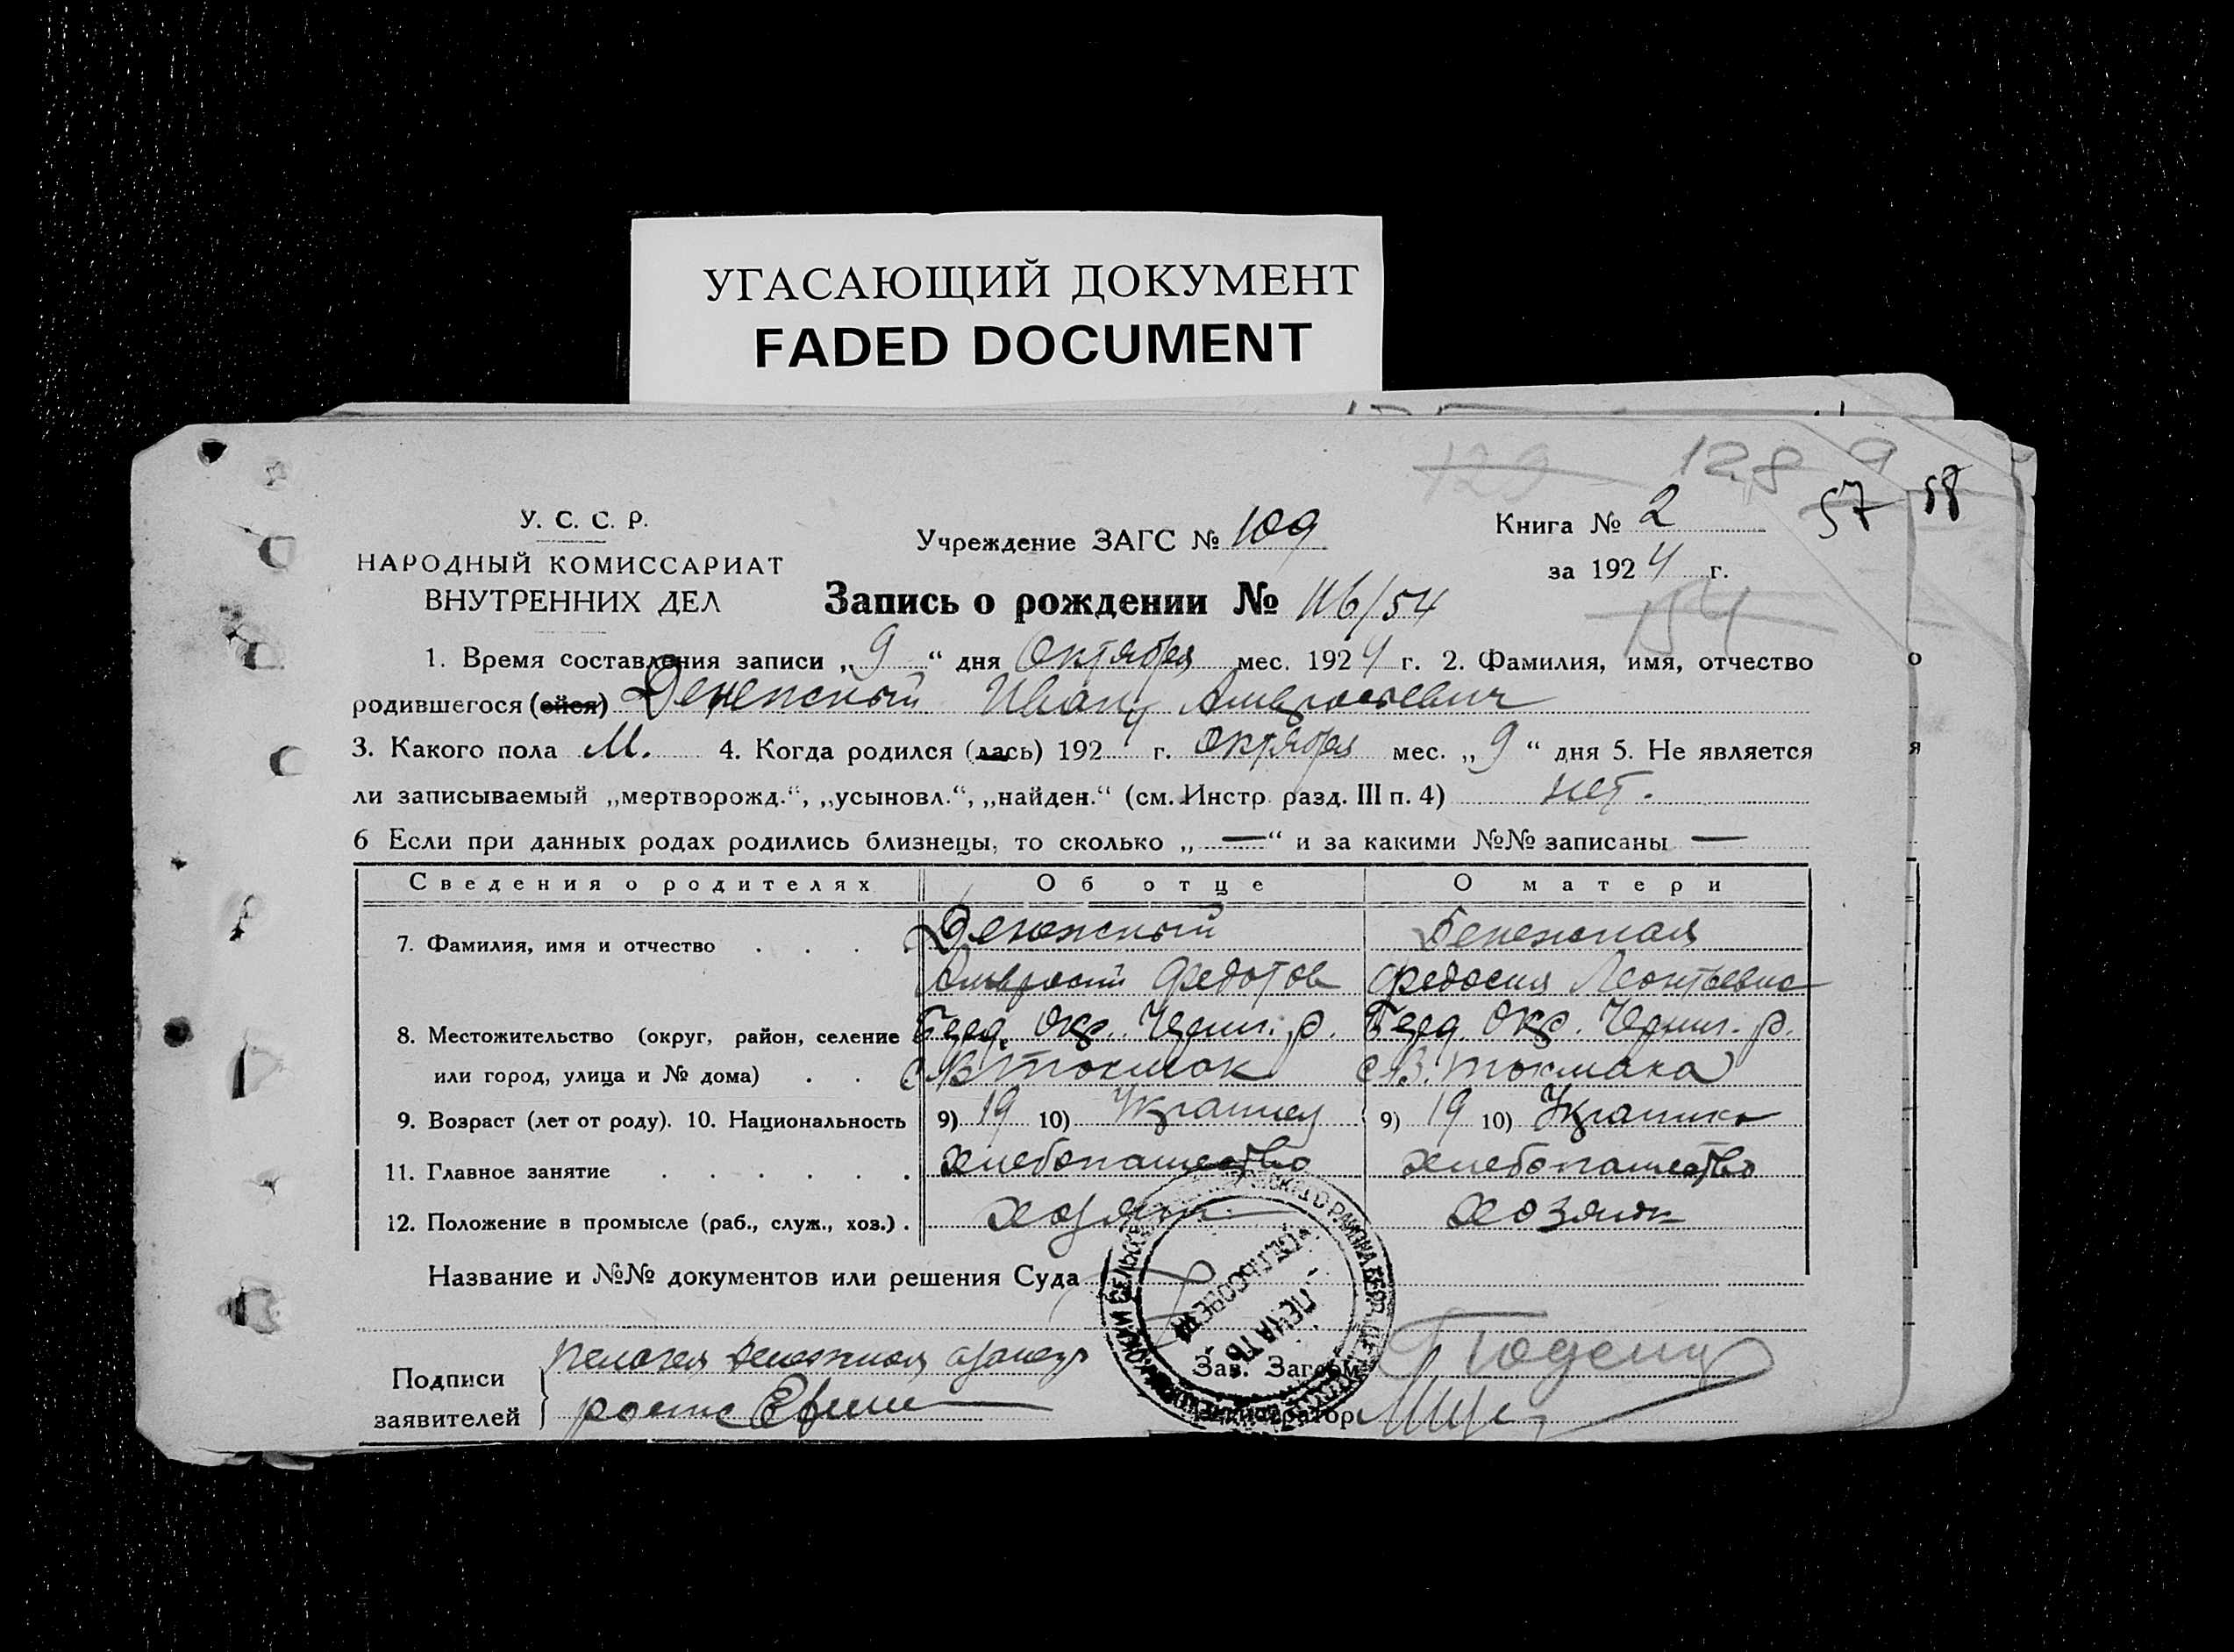 УГАСАЮЩИЙ ДОКУМЕНТ
FADED DOCUMENT
129 128 9
57 58
У. С. С. Р.
НАРОДНЫЙ КОМИССАРИАТ
ВНУТРЕННИХ ДЕЛ
Учреждение ЗАГС № 109
Книга № 2
за 1924 г.
Запись о рождении № 116/54
154
1. Время составления записи „9“ дня Октября мес. 1924 г. 2. Фамилия, имя, отчество
родившегося (ейся) Денежный Иван Амвросьевич
3. Какого пола М. 4. Когда родился (лась) 1924 г. Октября мес. „9“ дня 5. Не является
ли записываемый „мертворожд.“, „усыновл.“, „найден.“ (см. Инстр. разд. III п. 4) нет.
6 Если при данных родах родились близнецы, то сколько „—“ и за какими №№ записаны —
Сведения о родителях Об отце О матери
7. Фамилия, имя и отчество . . . Денежный Денежная
Амвросий Федотов Федосия Леонтьевна
8. Местожительство (округ, район, селение Берд. Окр. Черниг. р. Берд. Окр. Черниг. р.
или город, улица и № дома) . . с В Токмак с В. Токмака
9. Возраст (лет от роду). 10. Национальность 9) 19 10) Украинец 9) 19 10) Украинка
11. Главное занятие . . . . . . хлебопашество хлебопашество
12. Положение в промысле (раб., служ., хоз.) . хозяин хозяин
Название и №№ документов или решения Суда
ПЕЧАТЬ
СЕЛЬСОВЕТА
Подписи
заявителей
Пелагея Денежная
Зав. Загсом
Регистратор